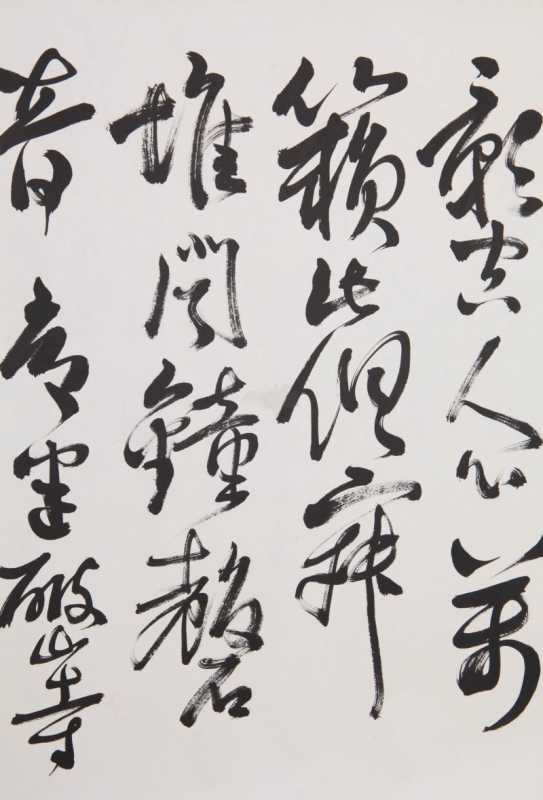 影空人心萬
籟此俱寂
惟聞鐘磬
音 常建 破山寺